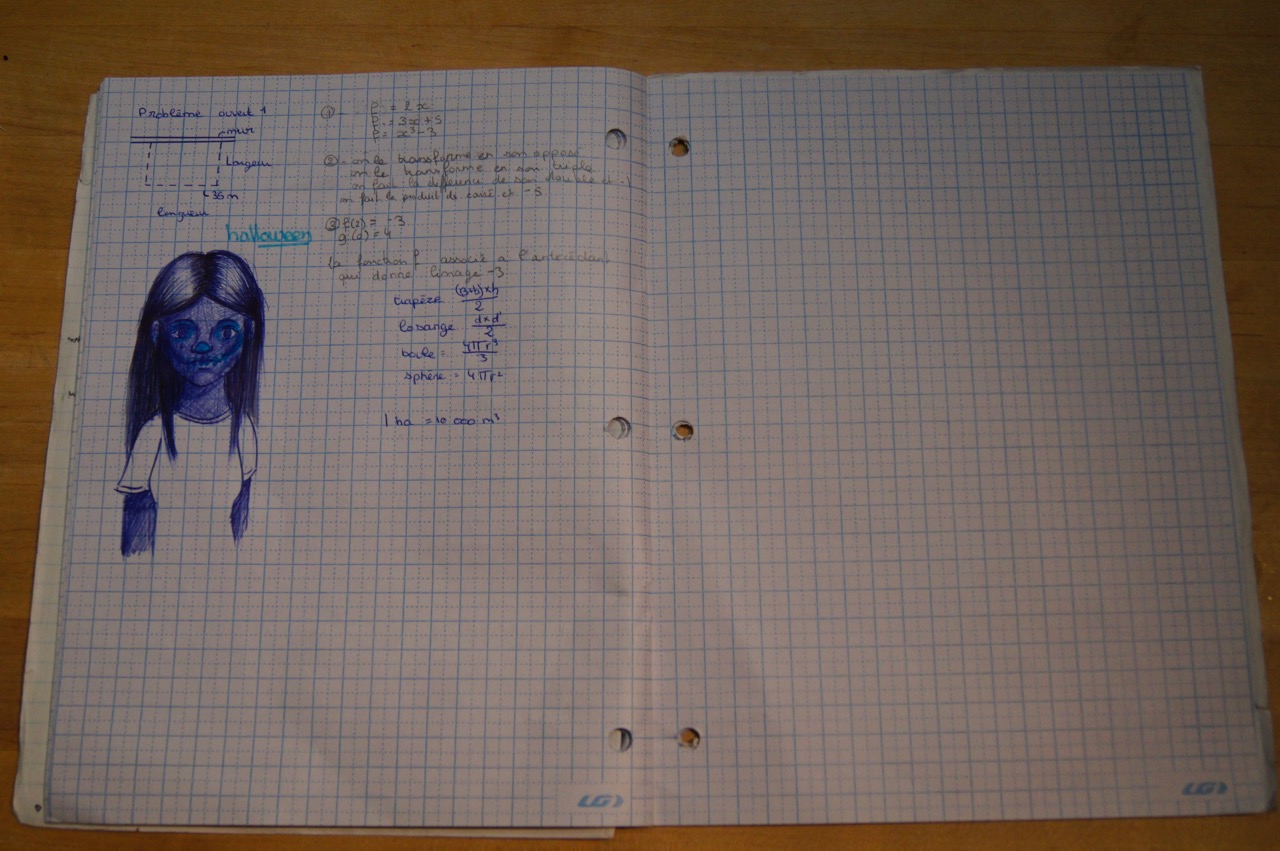 Problème ouvert 1
mur
Largeur
36 m
longueur
halloween
① f = 2x
f = 3x + 5
f = x³ - 3
② - on le transforme en son opposé
on le transforme en son triple
on fait la différence de son double et
on fait le produit du carré et -5
③ f(2) = -3
g(0) = 4
la fonction f associé à l'antécédant
qui donne l'image -3
trapèze (B+b)×h
2
losange d×d'
2
boule = 4πr³
3
sphère = 4πr²
1 ha = 10 000 m³
LG
LG